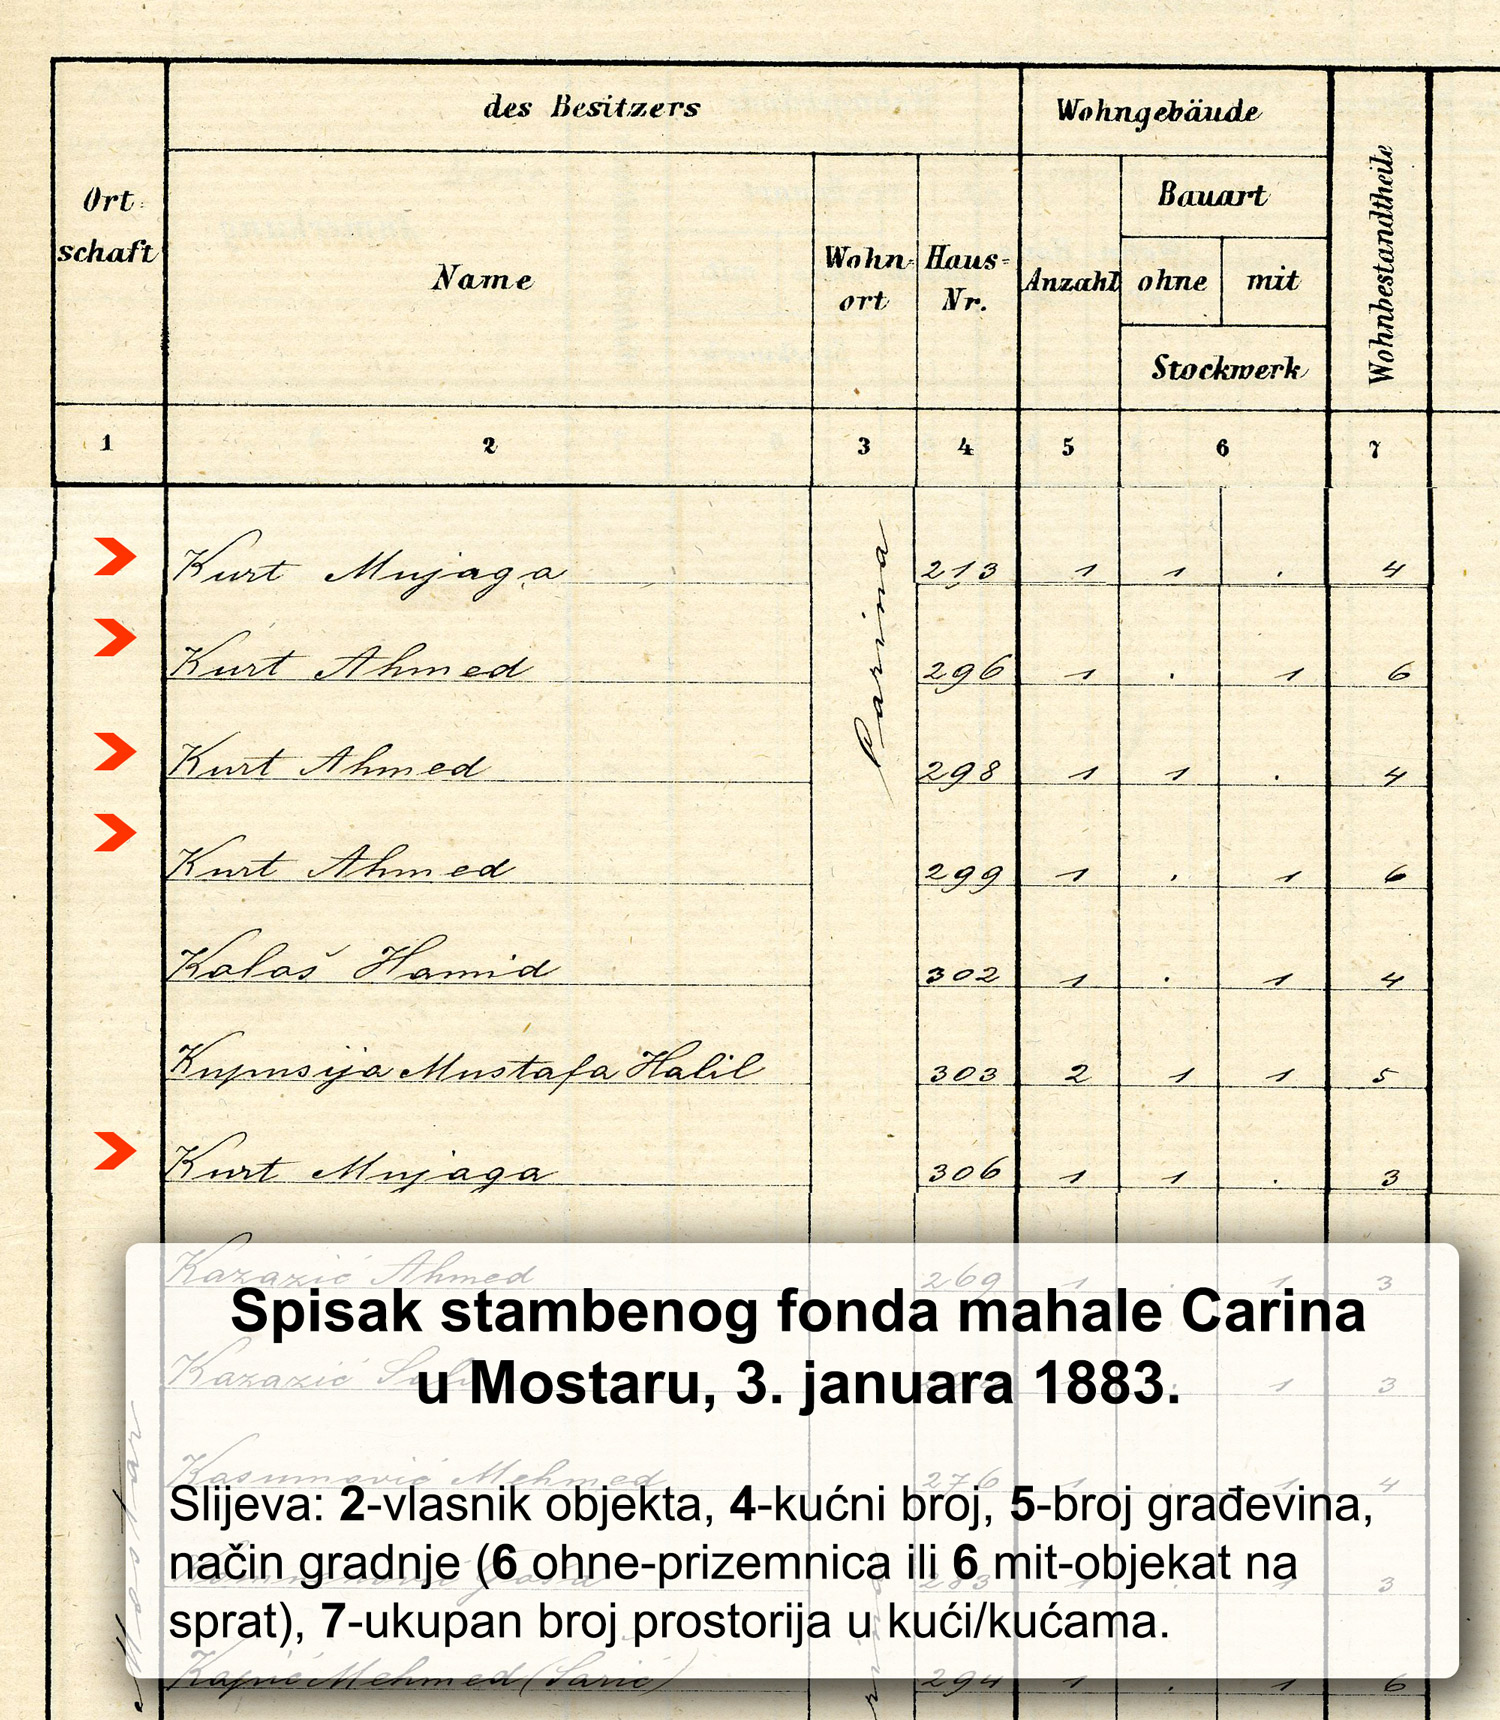 des Besitzers Wohngebäude
Ort-
schaft
Name
Wohn-
ort
Haus-
Nr.
Anzahl
Bauart
ohne mit
Stockwerk
Wohnbestandtheile
1 2 3 4 5 6 7
Carina
Kurt Mujaga 213 1 1 . 4
Kurt Ahmed 296 1 . 1 6
Kurt Ahmed 298 1 1 . 4
Kurt Ahmed 299 1 . 1 6
Kalaš Hamid 302 1 . 1 4
Mustafa Halil 303 2 1 1 5
Kurt Mujaga 306 1 1 . 3
Kazazić Ahmed 269 1 . 1 3
Spisak stambenog fonda mahale Carina
Kazazić 1 3
u Mostaru, 3. januara 1883.
Kasumović Mehmed 276 1 . 1 4
Slijeva: 2-vlasnik objekta, 4-kućni broj, 5-broj građevina,
način gradnje (6 ohne-prizemnica ili 6 mit-objekat na
283 1 . 1 3
sprat), 7-ukupan broj prostorija u kući/kućama.
Kapić Mehmed (Sarić) 294 1 . 1 6
Mostar